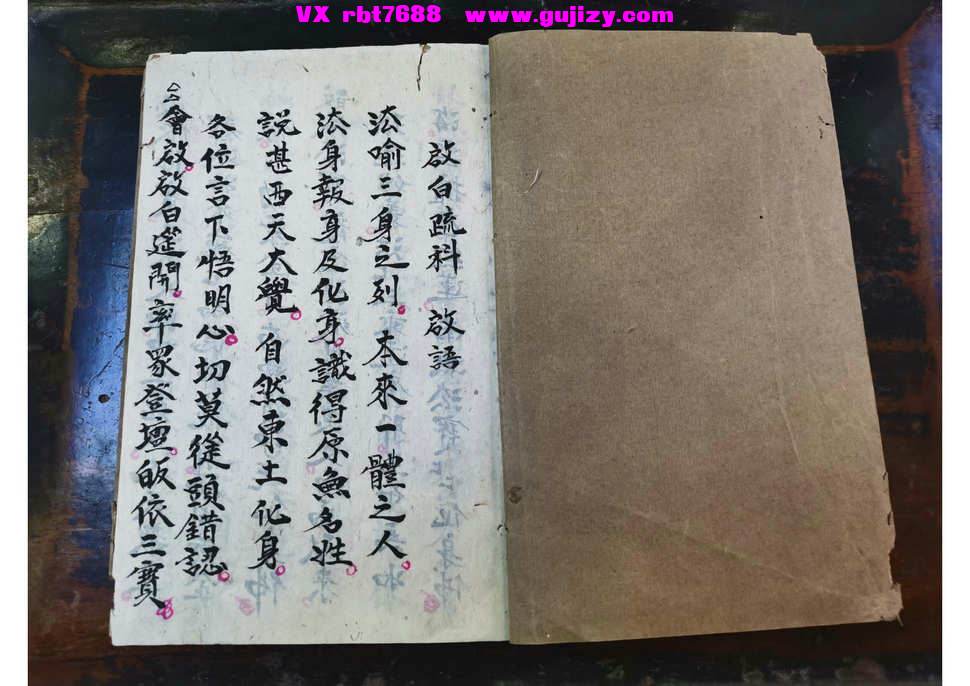 VX rbt7688 www.gujizy.com
啟白疏科 啟語
法喻三身之列 本來一體之人
法身報身及化身識得原無名姓
說甚西天大覺 自然東土化身
各位言下悟明心切莫從頭錯認
會啟啟白筵開率眾登壇皈依三寶